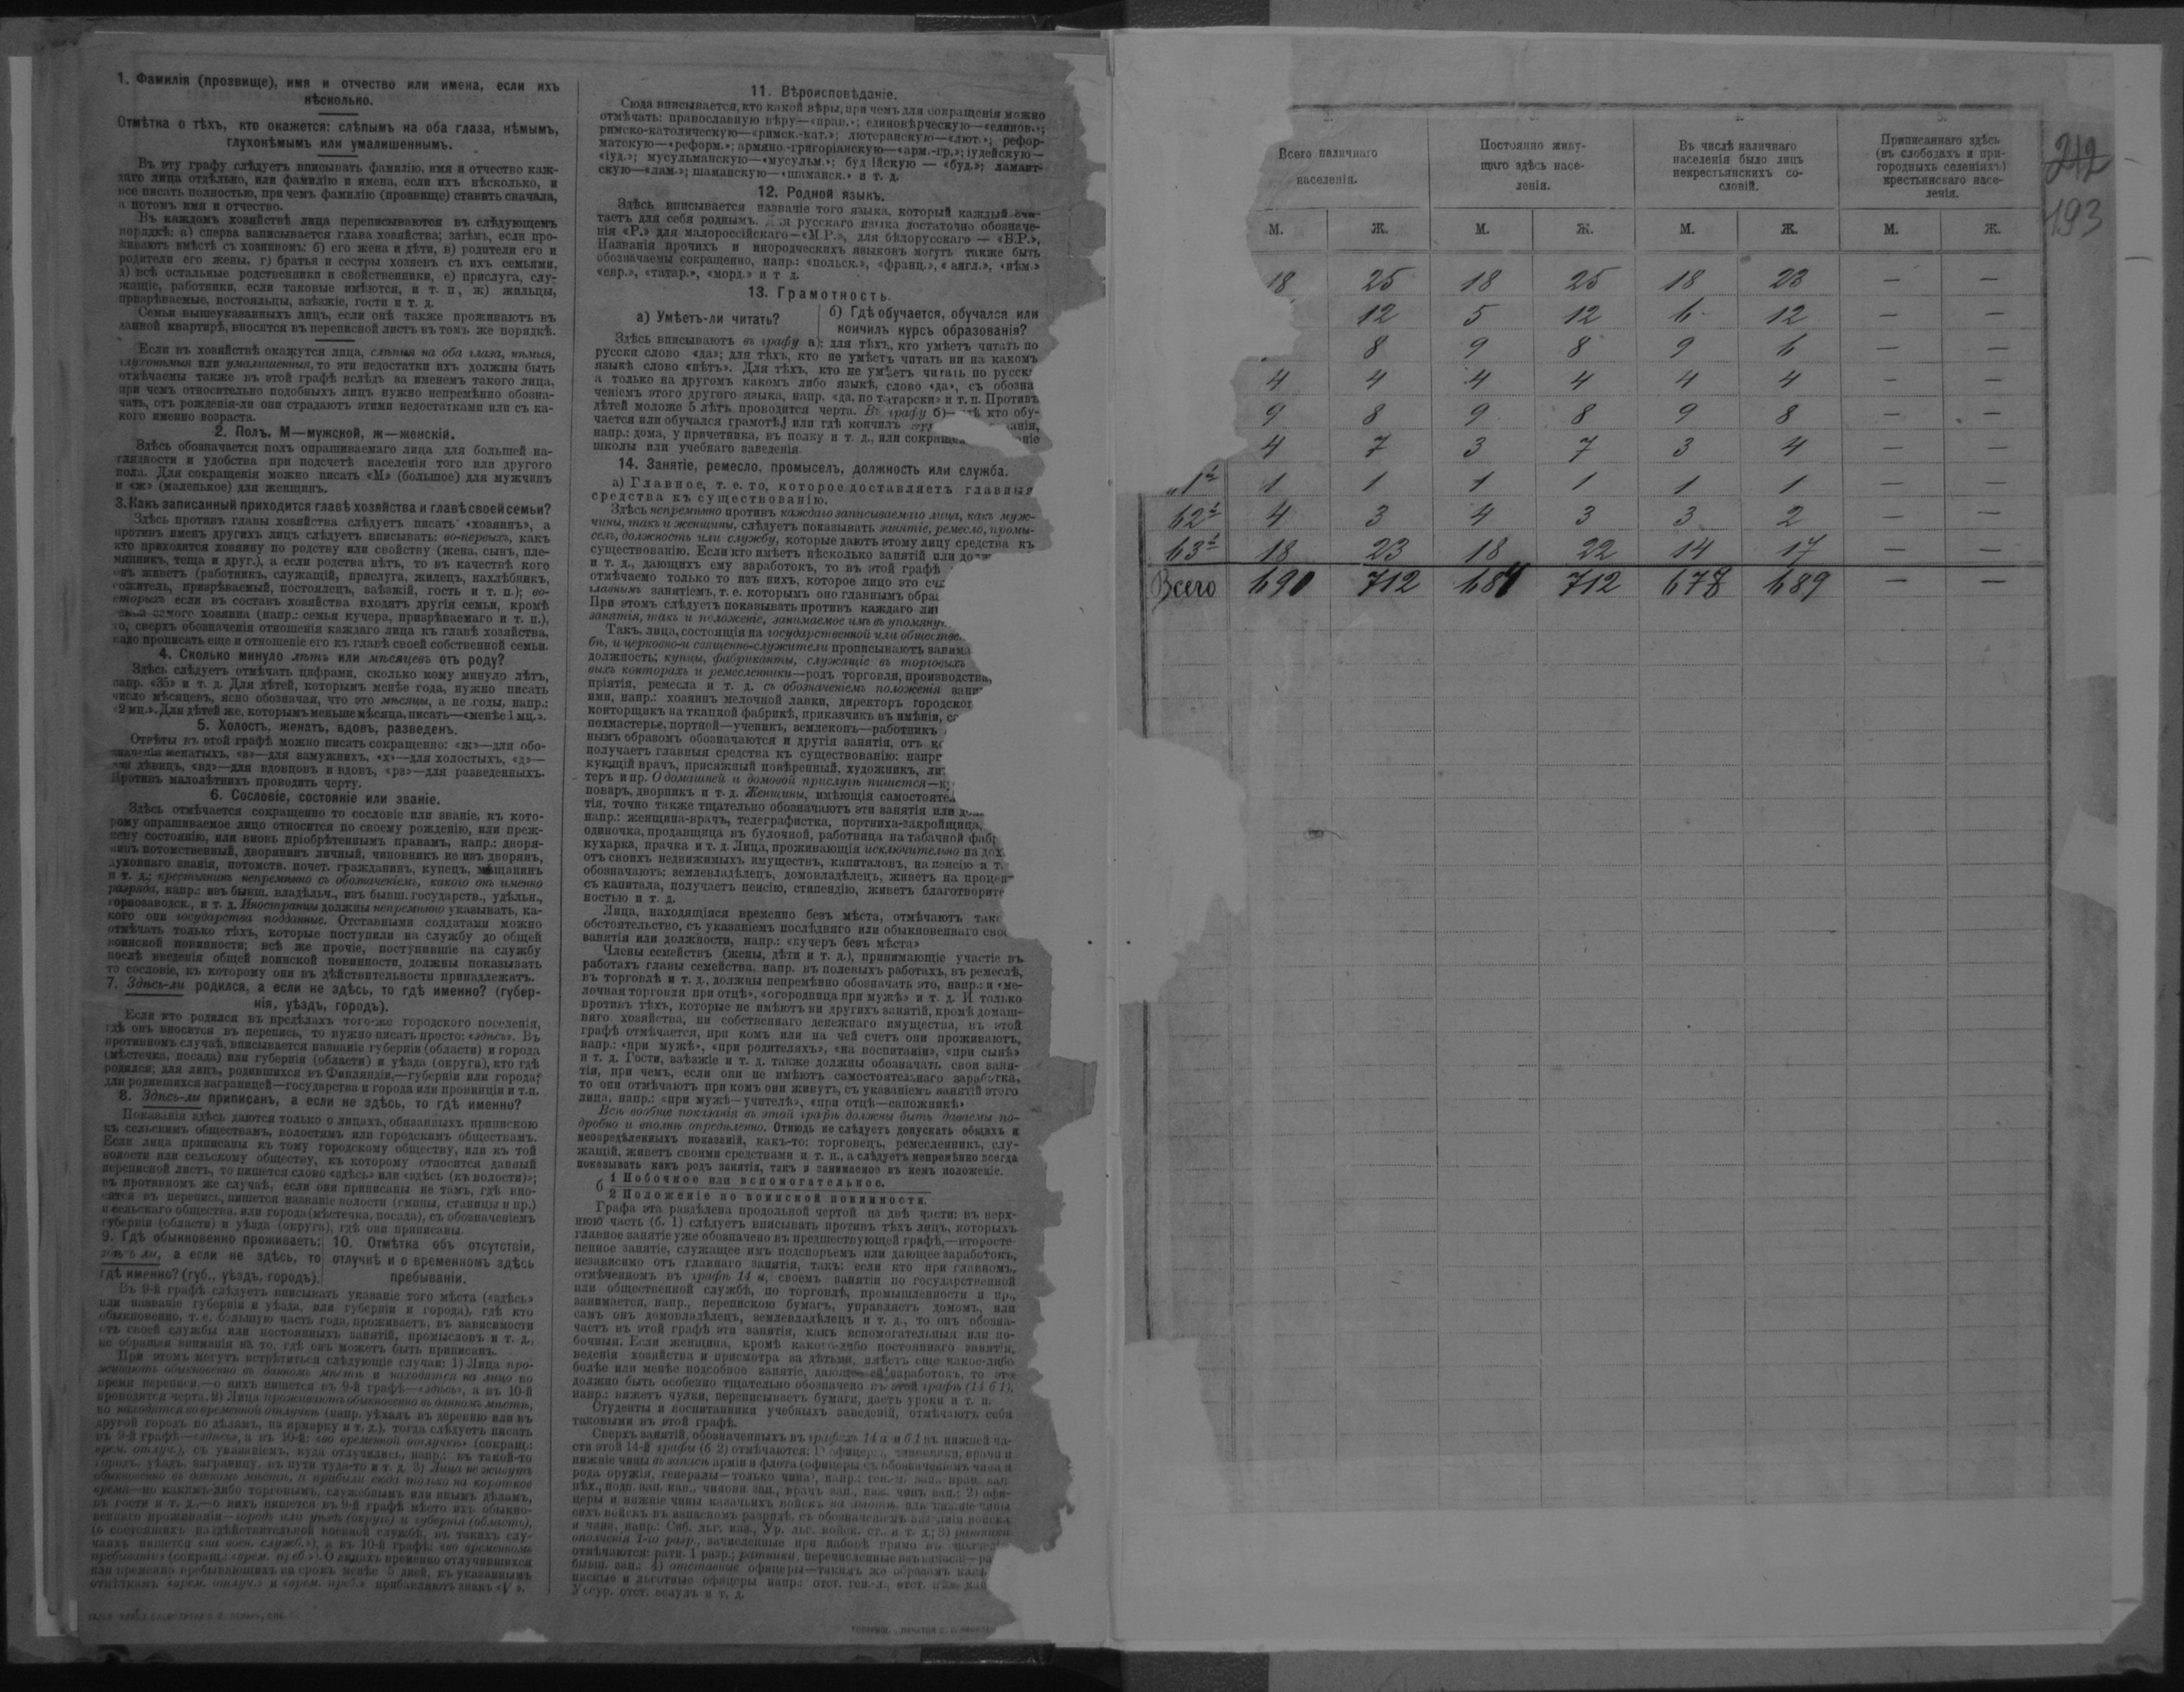 1. Фамилія (прозвище), имя и отчество или имена, если ихъ
нѣсколько.
Отмѣтка о тѣхъ, кто окажется: слѣпымъ на оба глаза, нѣмымъ,
глухонѣмымъ или умалишеннымъ.
Въ эту графу слѣдуетъ вписывать фамилію, имя и отчество каж-
даго лица отдѣльно, или фамилію и имена, если ихъ нѣсколько, и
все писать полностью, при чемъ фамилію (прозвище) ставить сначала,
а потомъ имя и отчество.
Въ каждомъ хозяйствѣ лица переписываются въ слѣдующемъ
порядкѣ: а) сперва записывается глава хозяйства; затѣмъ, если про-
живаютъ вмѣстѣ съ хозяиномъ: б) его жена и дѣти, в) родители его и
родители его жены, г) братья и сестры хозяевъ съ ихъ семьями,
д) всѣ остальные родственники и свойственники, е) прислуга, слу-
жащіе, работники, если таковые имѣются, и т. п., ж) жильцы,
призрѣваемые, постояльцы, заѣзжіе, гости и т. д.
Семьи вышеуказанныхъ лицъ, если онѣ также проживаютъ въ
данной квартирѣ, вносятся въ переписной листъ въ томъ же порядкѣ.
Если въ хозяйствѣ окажутся лица, слѣпыя на оба глаза, нѣмыя,
глухонѣмыя или умалишенныя, то эти недостатки ихъ должны быть
отмѣчаемы также въ этой графѣ вслѣдъ за именемъ такого лица,
при чемъ относительно подобныхъ лицъ нужно непремѣнно обозна-
чать, отъ рожденія-ли они страдаютъ этими недостатками или съ ка-
кого именно возраста.
2. Полъ. М—мужской, ж—женскій.
Здѣсь обозначается полъ опрашиваемаго лица для большей на-
глядности и удобства при подсчетѣ населенія того или другого
пола. Для сокращенія можно писать «М» (большое) для мужчинъ
и «ж» (маленькое) для женщинъ.
3. Какъ записанный приходится главѣ хозяйства и главѣ своей семьи?
Здѣсь противъ главы хозяйства слѣдуетъ писать «хозяинъ», а
противъ именъ другихъ лицъ слѣдуетъ вписывать: во-первыхъ, какъ
кто приходится хозяину по родству или свойству (жена, сынъ, пле-
мянникъ, теща и друг.), а если родства нѣтъ, то въ качествѣ кого
онъ живетъ (работникъ, служащій, прислуга, жилецъ, нахлѣбникъ,
сожитель, призрѣваемый, постоялецъ, заѣзжій, гость и т. п.); во-
вторыхъ если въ составъ хозяйства входятъ другія семьи, кромѣ
семьи самого хозяина (напр.: семья кучера, призрѣваемаго и т. п.),
то, сверхъ обозначенія отношенія каждаго лица къ главѣ хозяйства,
надо прописать еще и отношеніе его къ главѣ своей собственной семьи.
4. Сколько минуло лѣтъ или мѣсяцевъ отъ роду?
Здѣсь слѣдуетъ отмѣчать цифрами, сколько кому минуло лѣтъ,
напр. «35» и т. д. Для дѣтей, которымъ менѣе года, нужно писать
число мѣсяцевъ, ясно обозначая, что это мѣсяцы, а не годы, напр.:
«9 мц.». Для дѣтей же, которымъ меньше мѣсяца, писать—«менѣе 1 мц.».
5. Холостъ, женатъ, вдовъ, разведенъ.
Отвѣты въ этой графѣ можно писать сокращенно: «ж»—для обо-
значенія женатыхъ, «з»—для замужнихъ, «х»—для холостыхъ, «д»—
для дѣвицъ, «вд»—для вдовцовъ и вдовъ, «рз»—для разведенныхъ.
Противъ малолѣтнихъ проводить черту.
6. Сословіе, состояніе или званіе.
Здѣсь отмѣчается сокращенно то сословіе или званіе, къ кото-
рому опрашиваемое лицо относится по своему рожденію, или преж-
нему состоянію, или вновь пріобрѣтеннымъ правамъ, напр.: дворя-
нинъ потомственный, дворянинъ личный, чиновникъ не изъ дворянъ,
духовнаго званія, потомств. почет. гражданинъ, купецъ, мѣщанинъ
и т. д.; крестьянинъ непремѣнно съ обозначеніемъ, какого онъ именно
разряда, напр.: изъ бывш. владѣльч., изъ бывш. государств., удѣльн.,
горнозаводск., и т. д. Иностранцы должны непремѣнно указывать, ка-
кого они государства подданные. Отставными солдатами можно
отмѣчать только тѣхъ, которые поступили на службу до общей
воинской повинности; всѣ же прочіе, поступившіе на службу
послѣ введенія общей воинской повинности, должны показывать
то сословіе, къ которому они въ дѣйствительности принадлежатъ.
7. Здѣсь-ли родился, а если не здѣсь, то гдѣ именно? (губер-
нія, уѣздъ, городъ).
Если кто родился въ предѣлахъ того-же городского поселенія,
гдѣ онъ вносится въ перепись, то нужно писать просто: «здѣсь». Въ
противномъ случаѣ, вписывается названіе губерніи (области) и города
(мѣстечка, посада) или губерніи (области) и уѣзда (округа), кто гдѣ
родился; для лицъ, родившихся въ Финляндіи,—губерніи или города;
для родившихся заграницей—государства и города или провинціи и т.п.
8. Здѣсь-ли приписанъ, а если не здѣсь, то гдѣ именно?
Показанія здѣсь даются только о лицахъ, обязанныхъ припискою
къ сельскимъ обществамъ, волостямъ или городскимъ обществамъ.
Если лица приписаны къ тому городскому обществу, или къ той
волости или сельскому обществу, къ которому относится данный
переписной листъ, то пишется слово «здѣсь» или «здѣсь (къ волости)»;
въ противномъ же случаѣ, если они приписаны не тамъ, гдѣ вно-
сятся въ перепись, пишется названіе волости (гмины, станицы и пр.)
и сельскаго общества, или города (мѣстечка, посада), съ обозначеніемъ
губерніи (области) и уѣзда (округа), гдѣ они приписаны.
9. Гдѣ обыкновенно проживаетъ:
здѣсь ли, а если не здѣсь, то
гдѣ именно? (губ., уѣздъ, городъ).
10. Отмѣтка объ отсутствіи,
отлучкѣ и о временномъ здѣсь
пребываніи.
Въ 9-й графѣ слѣдуетъ вписывать указаніе того мѣста («здѣсь»
или названіе губерніи и уѣзда, или губерніи и города), гдѣ кто
обыкновенно, т. е. большую часть года, проживаетъ, въ зависимости
отъ своей службы или постоянныхъ занятій, промысловъ и т. д.,
не обращая вниманія на то, гдѣ онъ можетъ быть приписанъ.
При этомъ могутъ встрѣтиться слѣдующіе случаи: 1) Лица про-
живаютъ обыкновенно въ данномъ мѣстѣ и находятся на лицо во
время переписи,—о нихъ пишется въ 9-й графѣ—«здѣсь», а въ 10-й
проводится черта. 2) Лица проживаютъ обыкновенно въ данномъ мѣстѣ,
но находятся во временной отлучкѣ (напр. уѣхалъ въ деревню или въ
другой городъ по дѣламъ, на ярмарку и т. д.), тогда слѣдуетъ писать
въ 9-й графѣ—«здѣсь», а въ 10-й: «во временной отлучкѣ» (сокращ.:
врем. отлуч.), съ указаніемъ, куда отлучились, напр.: въ такой-то
городъ, уѣздъ, заграницу, въ пути туда-то и т. д. 3) Лица не живутъ
обыкновенно въ данномъ мѣстѣ, а прибыли сюда только на короткое
время—по какимъ-либо торговымъ, служебнымъ или инымъ дѣламъ,
въ гости и т. д.,—о нихъ пишется въ 9-й графѣ мѣсто ихъ обыкно-
веннаго проживанія—городъ или уѣздъ (округъ) и губернія (область),
(о состоящихъ на дѣйствительной военной службѣ, въ такихъ слу-
чаяхъ пишется «на воен. служб.»), а въ 10-й графѣ: «во временномъ
пребываніи» (сокращ.: «врем. преб.»). О лицахъ временно отлучившихся
или временно пребывающихъ на срокъ менѣе 5 дней, къ указаннымъ
отмѣткамъ «врем. отлуч.» и «врем. преб.» прибавляютъ знакъ «V».
11. Вѣроисповѣданіе.
Сюда вписывается, кто какой вѣры, при чемъ для сокращенія можно
отмѣчать: православную вѣру—«прав.»; единовѣрческую—«единов.»;
римско-католическую—«римск.-кат.»; лютеранскую—«лют.»; рефор-
матскую—«реформ.»; армяно-григоріанскую—«арм.-гр.»; іудейскую—
«іуд.»; мусульманскую—«мусульм.»; буд ійскую — «буд.»; ламаит-
скую—«лам.»; шаманскую—«шаманск.» и т. д.
12. Родной языкъ.
Здѣсь вписывается названіе того языка, который каждый счи-
таетъ для себя роднымъ. я русскаго языка достаточно обозначе-
нія «Р.» для малороссійскаго—«М.Р.», для бѣлорусскаго — «Б.Р.»,
Названія прочихъ и инородческихъ языковъ могутъ также быть
обозначаемы сокращенно, напр.: «польск.», «франц.», «англ.», «нѣм.»
«евр.», «татар.», «морд.» и т д.
13. Грамотность.
а) Умѣетъ-ли читать?
б) Гдѣ обучается, обучался или
кончилъ курсъ образованія?
Здѣсь вписываютъ въ графу а): для тѣхъ, кто умѣетъ читать по
русски слово «да»; для тѣхъ, кто не умѣетъ читать ни на какомъ
языкѣ слово «нѣтъ». Для тѣхъ, кто не умѣетъ читать по русск
а только на другомъ какомъ либо языкѣ, слово «да», съ обозна
ченіемъ этого другого языка, напр. «да, по татарски» и т. п. Противъ
дѣтей моложе 5 лѣтъ проводится черта. Въ графу б)— кто обу-
чается или обучался грамотѣ, или гдѣ кончилъ анія,
напр.: дома, у причетника, въ полку и т. д., или сокращен ніе
школы или учебнаго заведенія.
14. Занятіе, ремесло, промыселъ, должность или служба.
а) Главное, т. е. то, которое доставляетъ главныя
средства къ существованію.
Здѣсь непремѣнно противъ каждаго записываемаго лица, какъ муж-
чины, такъ и женщины, слѣдуетъ показывать занятіе, ремесло, промы-
селъ, должность или службу, которые даютъ этому лицу средства къ
существованію. Если кто имѣетъ нѣсколько занятій или до
и т. д., дающихъ ему заработокъ, то въ этой графѣ
отмѣчаемо только то изъ нихъ, которое лицо это сч
главнымъ занятіемъ, т. е. которымъ оно главнымъ обра
При этомъ слѣдуетъ показывать противъ каждаго ли
занятія, такъ и положеніе, занимаемое имъ въ упомяну
Такъ, лица, состоящія на государственной или обществе
бѣ, и церковно-и священно-служители прописываютъ занима
должность; купцы, фабриканты, служащіе въ торговыхъ
выхъ конторахъ и ремесленники—родъ торговли, производства,
пріятія, ремесла и т. д. съ обозначеніемъ положенія зани
ими, напр.: хозяинъ мелочной лавки, директоръ городског
конторщикъ на ткацкой фабрикѣ, приказчикъ въ имѣніи, с
подмастерье, портной—ученикъ, землекопъ—работникъ
нымъ образомъ обозначаются и другія занятія, отъ к
получаетъ главныя средства къ существованію: напр
кующій врачъ, присяжный повѣренный, художникъ, ли
теръ и пр. О домашней и домовой прислугѣ пишется—к
поваръ, дворникъ и т. д. Женщины, имѣющія самостояте
тія, точно также тщательно обозначаютъ эти занятія или д
напр.: женщина-врачъ, телеграфистка, портниха-закройщица,
одиночка, продавщица въ булочной, работница на табачной фабр
кухарка, прачка и т. д. Лица, проживающія исключительно на дох
отъ своихъ недвижимыхъ имуществъ, капиталовъ, на пенсію и т.
обозначаютъ: землевладѣлецъ, домовладѣлецъ, живетъ на процен
съ капитала, получаетъ пенсію, стипендію, живетъ благотворите
ностью и т. д.
Лица, находящіяся временно безъ мѣста, отмѣчаютъ так
обстоятельство, съ указаніемъ послѣдняго или обыкновеннаго сво
занятія или должности, напр.: «кучеръ безъ мѣста»
Члены семействъ (жены, дѣти и т. д.), принимающіе участіе въ
работахъ главы семейства, напр. въ полевыхъ работахъ, въ ремеслѣ,
въ торговлѣ и т. д., должны непремѣнно обозначать это, напр.: и «ме-
лочная торговля при отцѣ», «огородница при мужѣ» и т. д. И только
противъ тѣхъ, которые не имѣютъ ни другихъ занятій, кромѣ домаш-
няго хозяйства, ни собственнаго денежнаго имущества, въ этой
графѣ отмѣчается, при комъ или на чей счетъ они проживаютъ,
напр.: «при мужѣ», «при родителяхъ», «на воспитаніи», «при сынѣ»
и т. д. Гости, заѣзжіе и т. д. также должны обозначать свои заня-
тія, при чемъ, если они не имѣютъ самостоятельнаго заработка,
то они отмѣчаютъ при комъ они живутъ, съ указаніемъ занятій этого
лица, напр.: «при мужѣ—учителѣ», «при отцѣ—сапожникѣ»
Всѣ вообще показанія въ этой графѣ должны быть даваемы по-
дробно и вполнѣ опредѣленно. Отнюдь не слѣдуетъ допускать общихъ и
неопредѣленныхъ показаній, какъ-то: торговецъ, ремесленникъ, слу-
жащій, живетъ своими средствами и т. п., а слѣдуетъ непремѣнно всегда
показывать какъ родъ занятія, такъ и занимаемое въ немъ положеніе.
б 1 Побочное или вспомогательное.
2 Положеніе по воинской повинности.
Графа эта раздѣлена продольной чертой на двѣ части: въ верх-
нюю часть (б. 1) слѣдуетъ вписывать противъ тѣхъ лицъ, которыхъ
главное занятіе уже обозначено въ предшествующей графѣ,—второсте-
пенное занятіе, служащее имъ подспорьемъ или дающее заработокъ,
независимо отъ главнаго занятія, такъ: если кто при главномъ,
отмѣченномъ въ графѣ 14 а, своемъ занятіи по государственной
или общественной службѣ, по торговлѣ, промышленности и пр.,
занимается, напр., перепискою бумагъ, управляетъ домомъ, или
самъ онъ домовладѣлецъ, землевладѣлецъ и т. д., то онъ обозна-
чаетъ въ этой графѣ эти занятія, какъ вспомогательныя или по-
бочныя. Если женщина, кромѣ какого-либо постояннаго занятія,
веденія хозяйства и присмотра за дѣтьми, имѣетъ еще какое-либо
болѣе или менѣе подсобное занятіе, дающее ей заработокъ, то это
должно быть особенно тщательно обозначено въ этой графѣ (14 б 1),
напр.: вяжетъ чулки, переписываетъ бумаги, даетъ уроки и т. п.
Студенты и воспитанники учебныхъ заведеній, отмѣчаютъ себя
таковыми въ этой графѣ.
Сверхъ занятій, обозначенныхъ въ графахъ 14 а и б 1 въ нижней ча-
сти этой 14-й графы (б 2) отмѣчаются: 1) офицеры, чиновники, врачи и
нижніе чины въ запасѣ арміи и флота (офицеры съ обозначеніемъ чина и
рода оружія, генералы—только чина),
Всего наличнаго
населенія.
Постоянно живу-
щаго здѣсь насе-
ленія.
Въ числѣ наличнаго
населенія было лицъ
некрестьянскихъ со-
словій.
Приписаннаго здѣсь
(въ слободахъ и при-
городныхъ селеніяхъ)
крестьянскаго насе-
ленія.
212
193
М. Ж. М. Ж. М. Ж. М. Ж.
18 25 18 25 18 23 — —
12 5 12 6 12 — —
8 9 8 9 6 — —
4 4 4 4 4 4 — —
9 8 9 8 9 8 — —
4 7 3 7 3 4 — —
„1 1 1 1 1 1 1 — —
62 4 3 4 3 3 2 — —
63 18 23 18 22 14 17 — —
Всего 690 712 681 712 678 689 — —